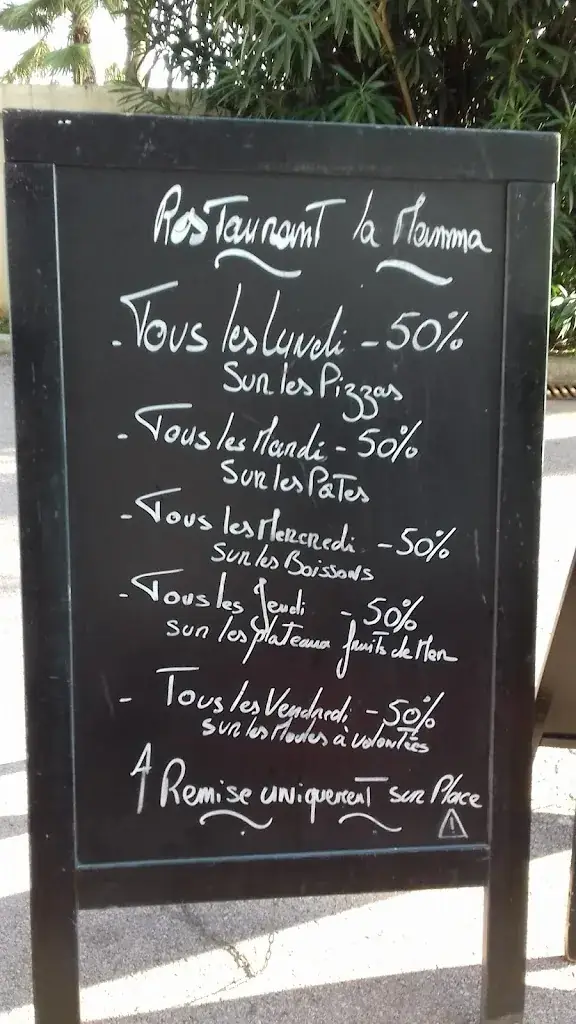 Restaurant la Mamma
- Tous les Lundi - 50%
Sur les Pizzas
- Tous les Mardi - 50%
Sur les Pates
- Tous les Mercredi - 50%
Sur les Boissons
- Tous les Jeudi - 50%
sur les plateaux fruits de Mer
- Tous les Vendredi - 50%
sur les Moules à volontées
Remise uniquement sur Place